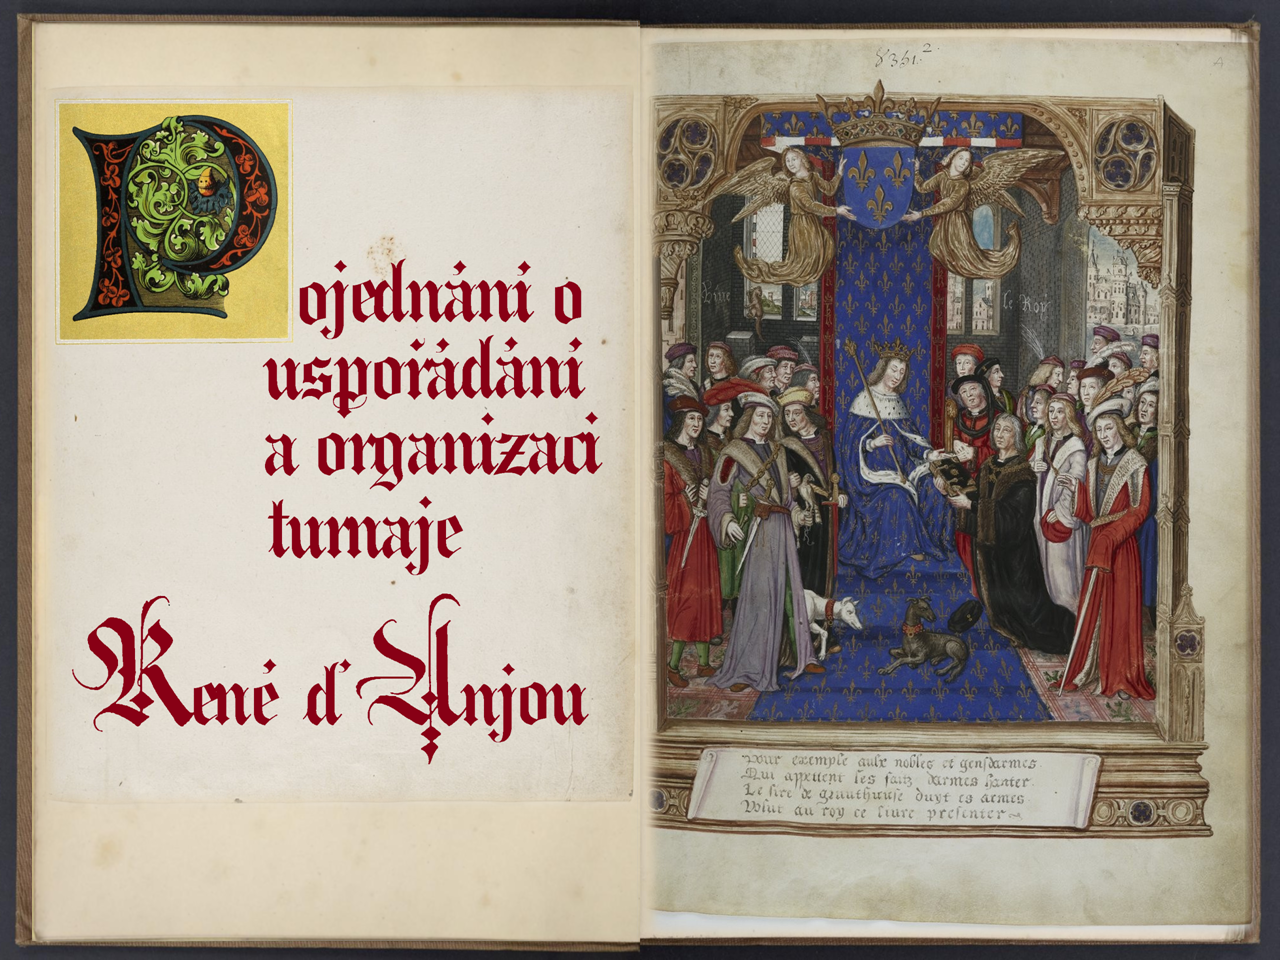 Pojednání o
uspořádání
a organizaci
turnaje
René d'Anjou
8351.2
Vive le Roy
Pour exemple aulx nobles et gensdarmes
Qui appetent les faitz darmes hanter
Le sire de gruuthuse duyt es armes
Volut au roy ce liure presenter